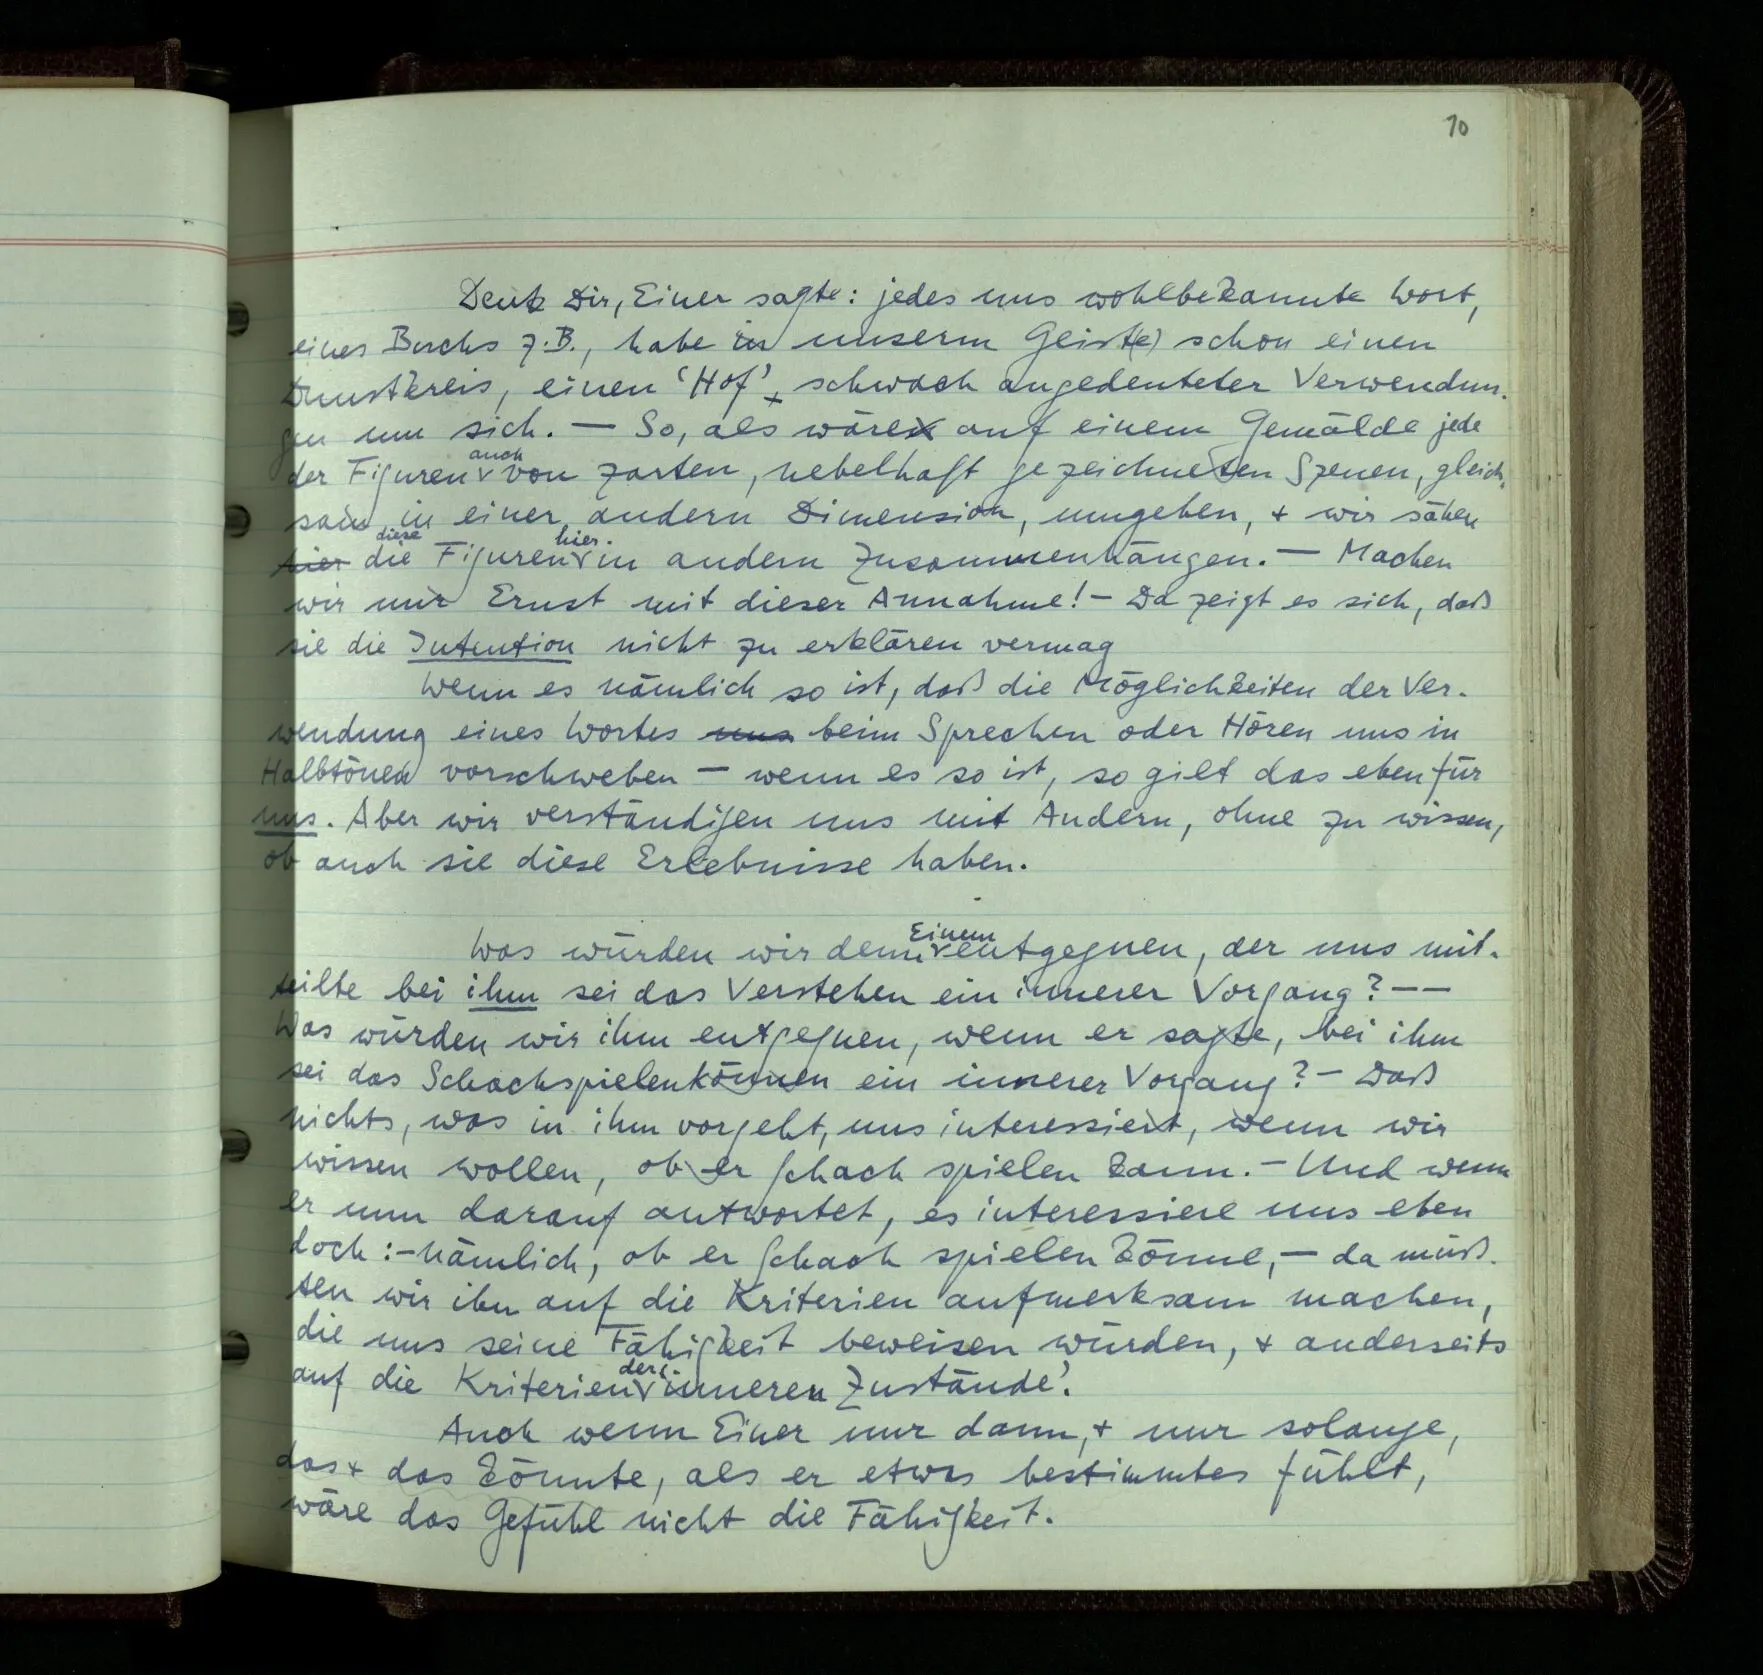 10
Denk Dir, Einer sagte: jedes uns wohlbekannte Wort,
eines Buchs z.B., habe in unserm Geist(e) schon einen
Dunstkreis, einen ‘Hof’, schwach angedeuteter Verwendun-
gen um sich. — So, als wäre auf einem Gemälde jede
der Figuren auch von zarten, nebelhaft gezeichneten Szenen, gleich-
sam in einer andern Dimension, umgeben, + wir sähen
hier die diese Figuren hier in andern Zusammenhängen. — Machen
wir nur Ernst mit dieser Annahme! – Da zeigt es sich, daß
sie die Intention nicht zu erklären vermag
Wenn es nämlich so ist, daß die Möglichkeiten der Ver-
wendung eines Wortes uns beim Sprechen oder Hören uns in
Halbtönen vorschweben — wenn es so ist, so gilt das eben für
uns. Aber wir verständigen uns mit Andern, ohne zu wissen,
ob auch sie diese Erlebnisse haben.
Was würden wir dem Einem entgegnen, der uns mit-
teilte bei ihm sei das Verstehen ein innerer Vorgang? – –
Was würden wir ihm entgegnen, wenn er sagte, bei ihm
sei das Schachspielenkönnen ein innerer Vorgang? – Daß
nichts, was in ihm vorgeht, uns interessiert, wenn wir
wissen wollen, ob er Schach spielen kann. – Und wenn
er nun darauf antwortet, es interessiere uns eben
doch: – nämlich, ob er Schach spielen könne, — da müß-
ten wir ihn auf die Kriterien aufmerksam machen,
die uns seine Fähigkeit beweisen würden, + anderseits
auf die Kriterien der ‘inneren Zustände’.
Auch wenn Einer nur dann, + nur solange,
das + das könnte, als er etwas bestimmtes fühlt,
wäre das Gefühl nicht die Fähigkeit.